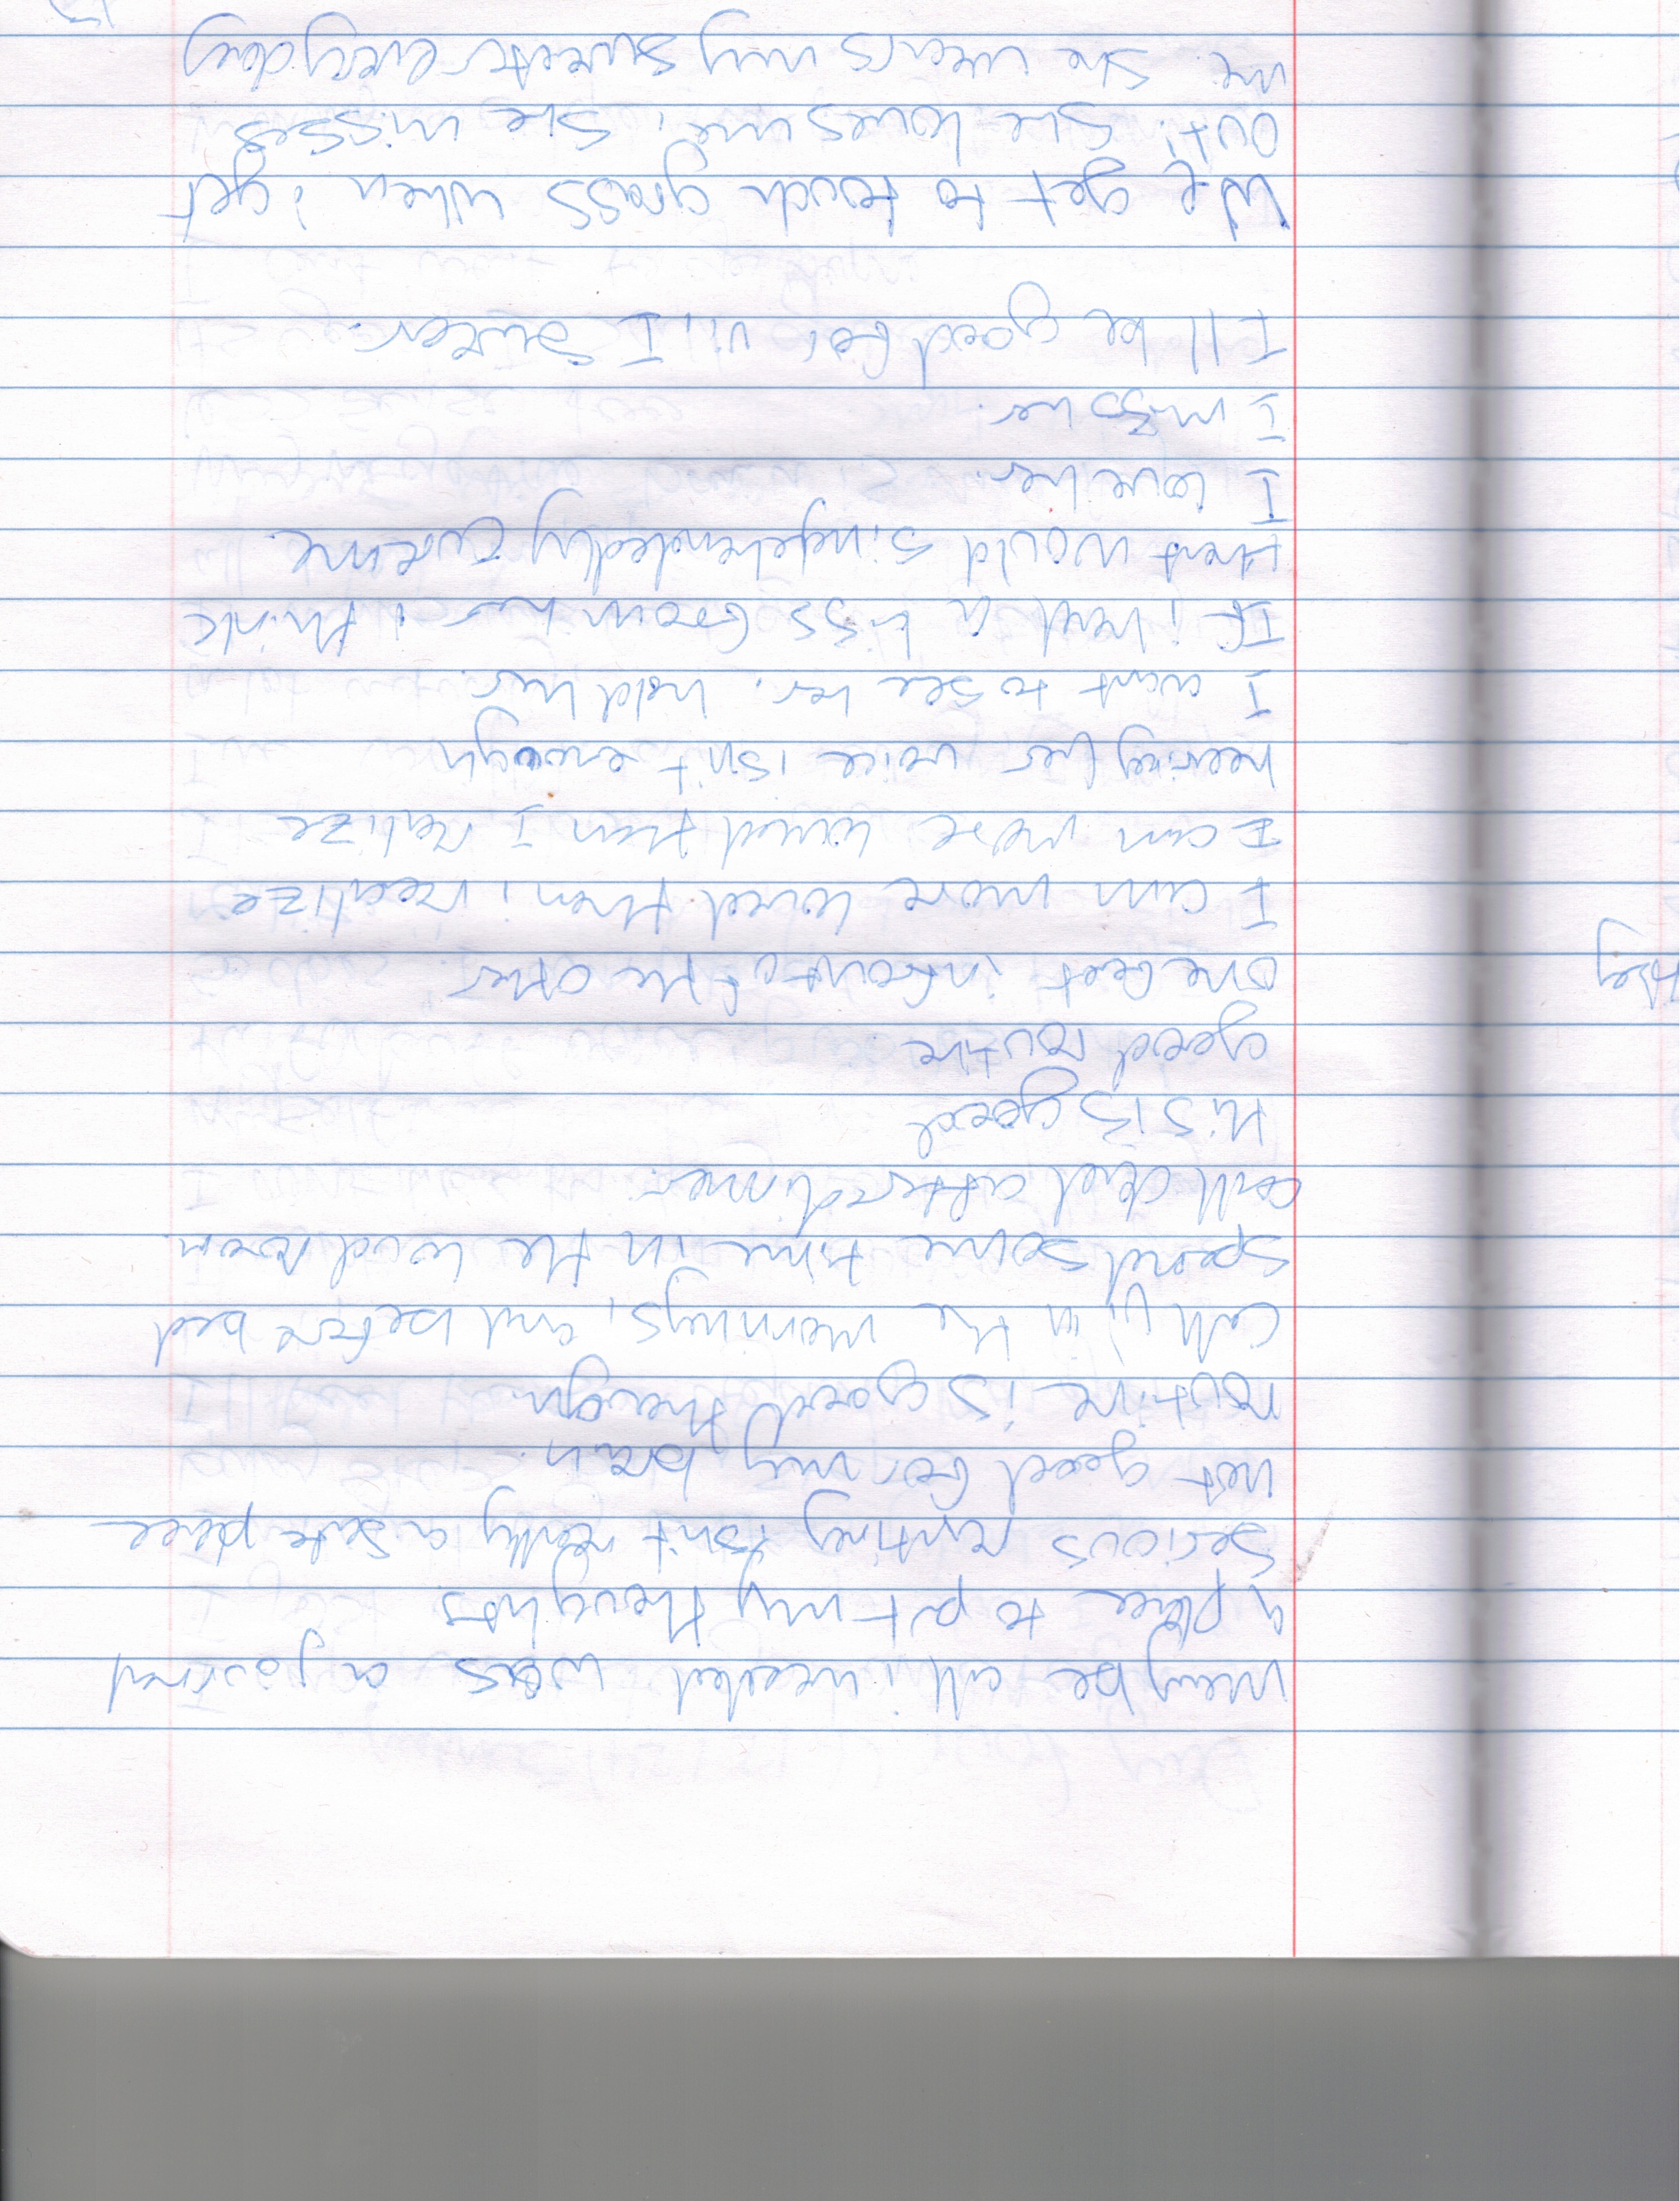 maybe all i needed was a journal
a place to put my thoughts
serious writing isn't really a safe place
not good for my brain.
routine is good though.
call vi in the mornings, and before bed
spend some time in the loud room
call dad after dinner.
this is good
good routine
one feet infront of the other
I am more loved than i realize
I am more loved than I realize
hearing her voice isn't enough
I want to see her. hold her.
If i had a kiss from her i think
that would singlehandedly cure me
I love her.
I miss her.
I'll be good for vi. I swear.
We get to touch grass when i get
out. She loves me, she misses
me. She wears my sweater everyday
they